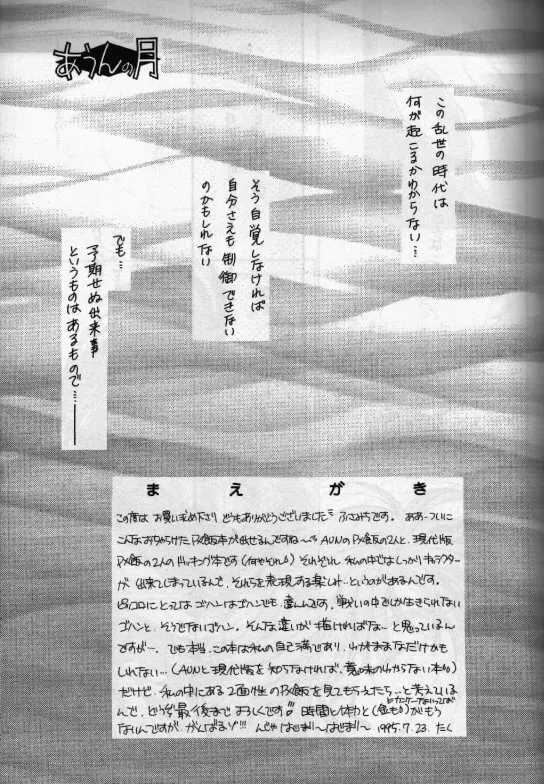 あうんの月
この乱世の時代は
何が起こるかわからない…
そう自覚しなければ
自分さえも制御できない
のかもしれない
でも…
予期せぬ出来事
というものはあるもので…
まえがき
この度は お買い求め下さり どうもありがとうございました ふさみちです。 ああーついに
こんなおちゃらけた 飯本が出せるんですね〜 AUNの 飯の2人と、現代版
飯の2人のドッキング本です(何やそれ) それぞれ 私の中ではしっかりキャラクター
が 出来てしまっているんで、それらを表現する楽しみ…というのがあるんです。
ピッコロにとっては ゴハンはゴハンでも 違うんです。戦いの中でしか生きられない
ゴハンと、そうでないゴハン。そんな違いが 描ければなぁ…と思っているん
ですが…。でも本当、この本は私の自己満であり、わがままなだけかも
しれない…(AUNと現代版を知らなければ、意味のわからない本)
だけど、私の中にある2面性の 飯を見てもらえたら…と考えている
んで、どうぞ最後まで よろしくです!! 時間と体力と(金も)がもう
ないんですが がんばるゾ!!! んじゃはじまり〜はじまり〜 1995.7.23. たく